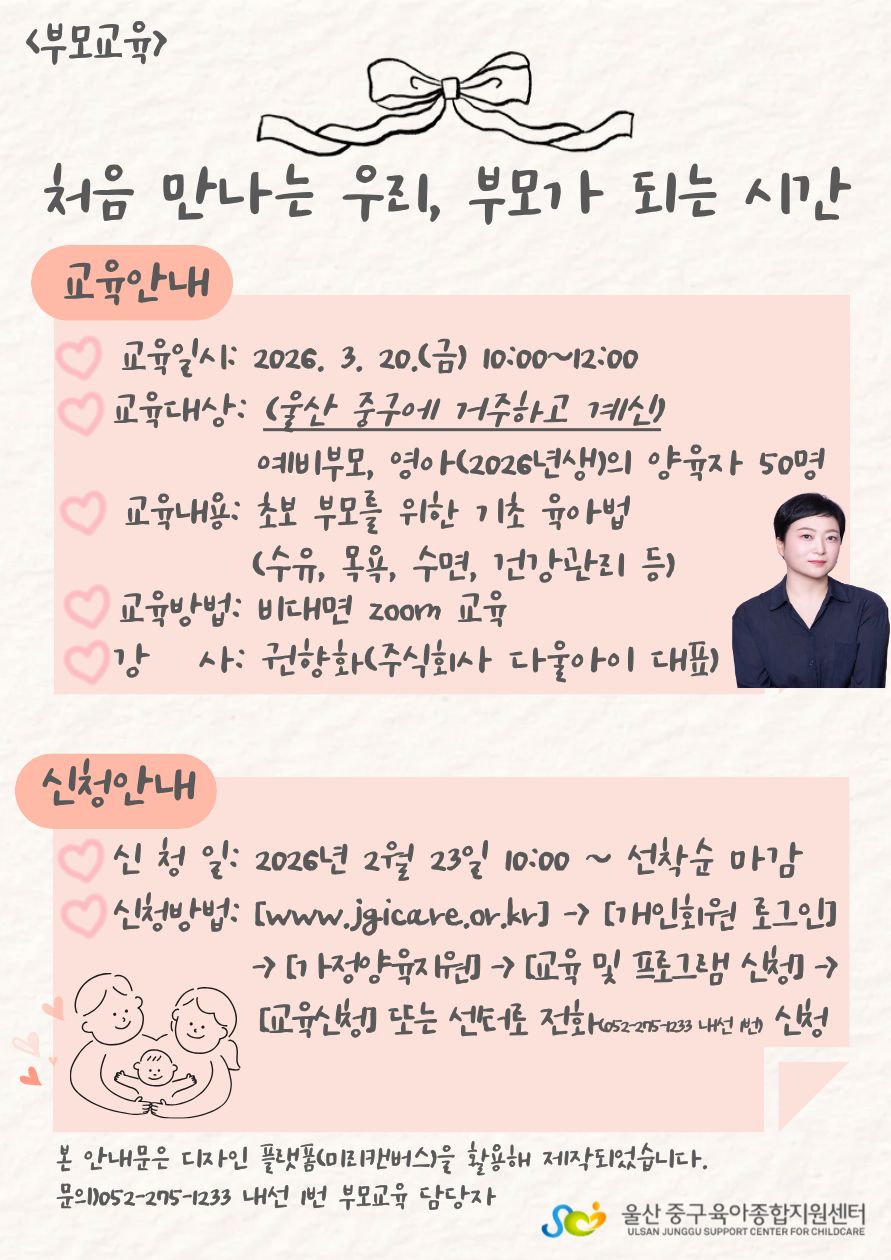 <부모교육>
처음 만나는 우리, 부모가 되는 시간
교육안내
교육일시: 2026. 3. 20.(금) 10:00~12:00
교육대상: (울산 중구에 거주하고 계신)
예비부모, 영아(2026년생)의 양육자 50명
교육내용: 초보 부모를 위한 기초 육아법
(수유, 목욕, 수면, 건강관리 등)
교육방법: 비대면 zoom 교육
강 사: 권향화(주식회사 다울아이 대표)
신청안내
신 청 일: 2026년 2월 23일 10:00 ~ 선착순 마감
신청방법: [www.jgicare.or.kr] -> [개인회원 로그인]
-> [가정양육지원] -> [교육 및 프로그램 신청] ->
[교육신청] 또는 센터로 전화(052-275-1233 내선 1번) 신청
본 안내문은 디자인 플랫폼(미리캔버스)을 활용해 제작되었습니다.
문의)052-275-1233 내선 1번 부모교육 담당자
울산 중구 육아종합지원센터
ULSAN JUNGGU SUPPORT CENTER FOR CHILDCARE